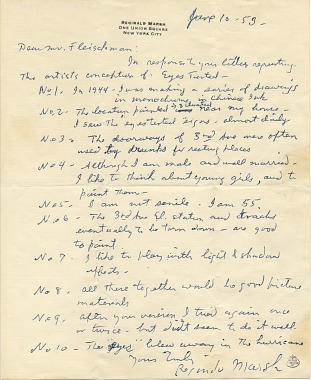 REGINALD MARSH
ONE UNION SQUARE
NEW YORK CITY
June 10-53-
Dear Mr. Fleischman:
In response to your letter requesting
The artists conception of Eyes Tested -
No 1 - In 1944 - I was making a series of drawings
in monochrome Chinese Ink
No. 2 - The location painted near my house -
I saw the eyes tested signs - almost daily
No 3 - The doorways of 3rd Ave were often
used by drunks for resting places
No 4 - Although I am male and well married -
I like to think about young girls, and to
paint them -
No 5 - I am not senile - I am 55.
No 6 - The 3rd Ave El. station and tracks
eventually to be torn down - are good
to paint
No 7 - I like to play with light & shadow
effects -
No 8 - all these together would be good picture
materials
No 9 - after your version I tried again once
or twice - but didn't seem to do it well
No 10 - The "eyes" blew away in the hurricane
Yours Truly
Reginald Marsh